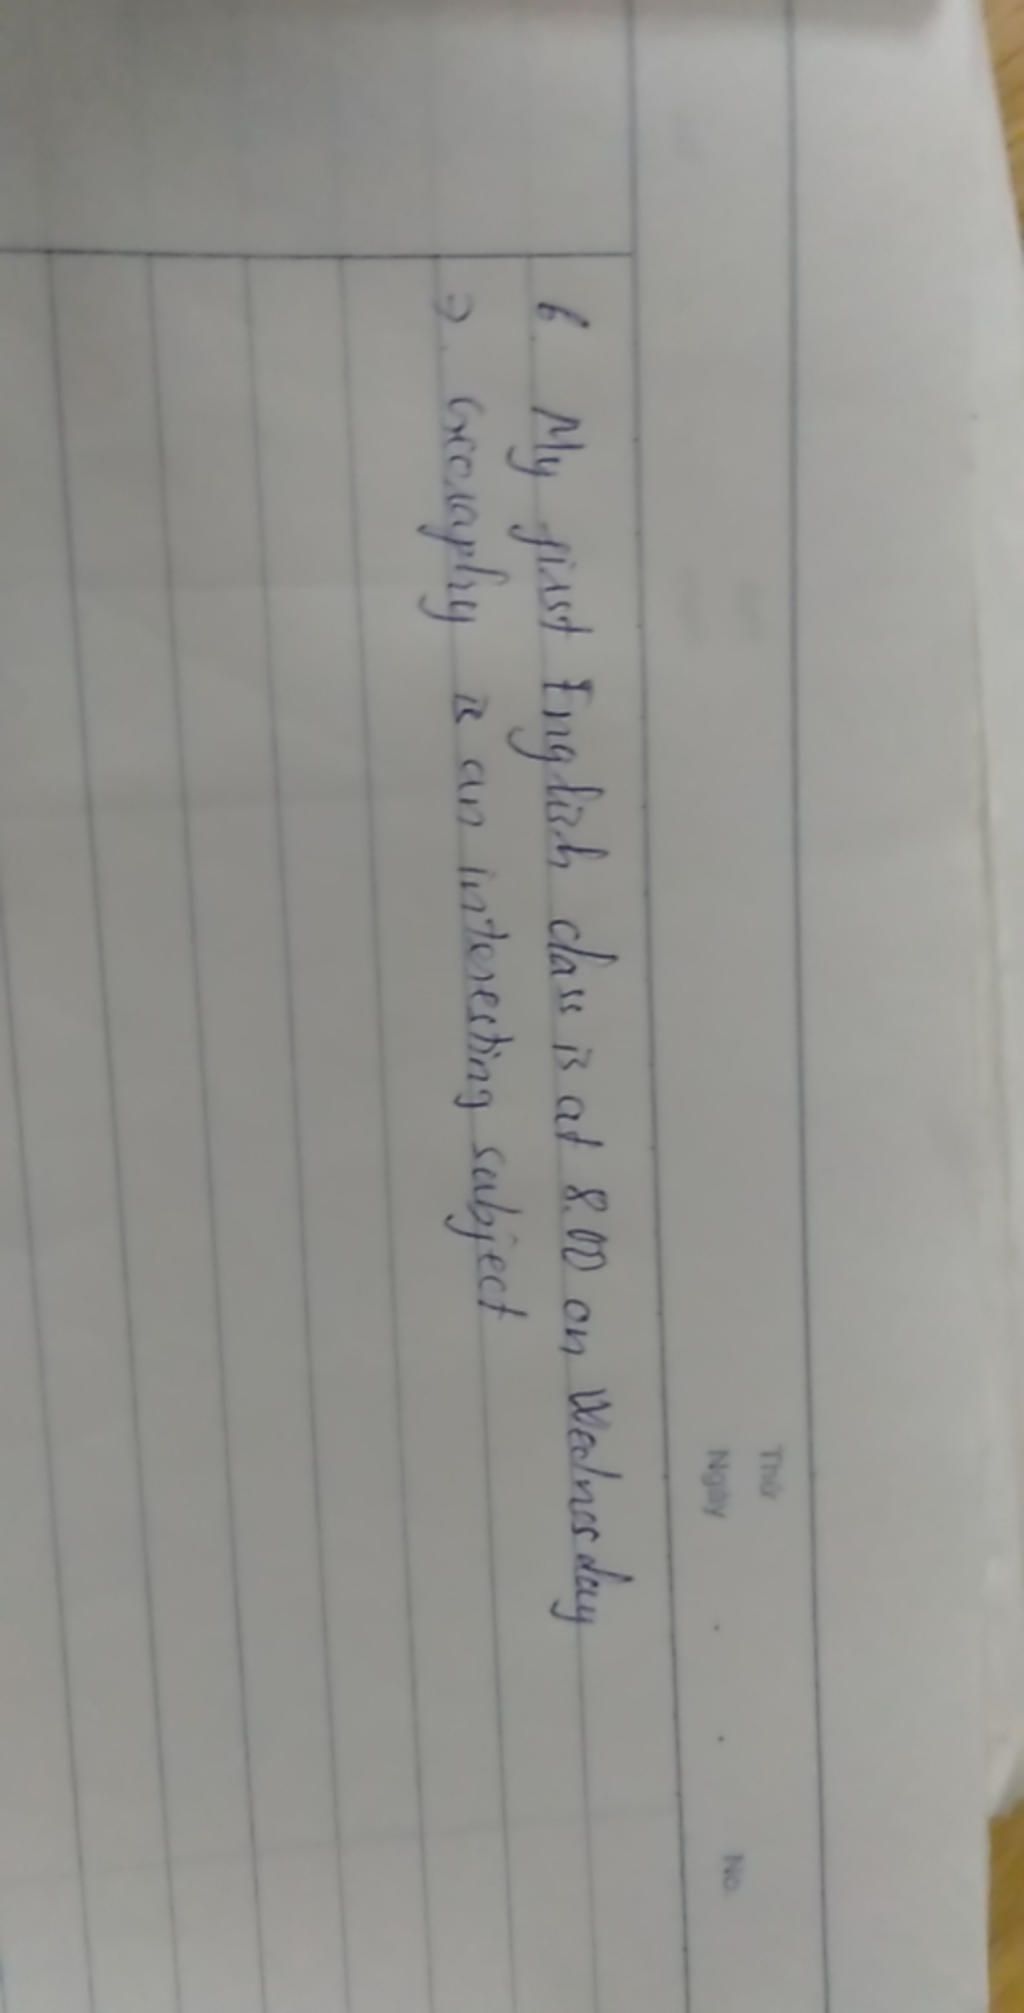 Thứ
Ngày . . No.
6. My first English class is at 8.00 on Wednesday
7. Geography is an interesting subject